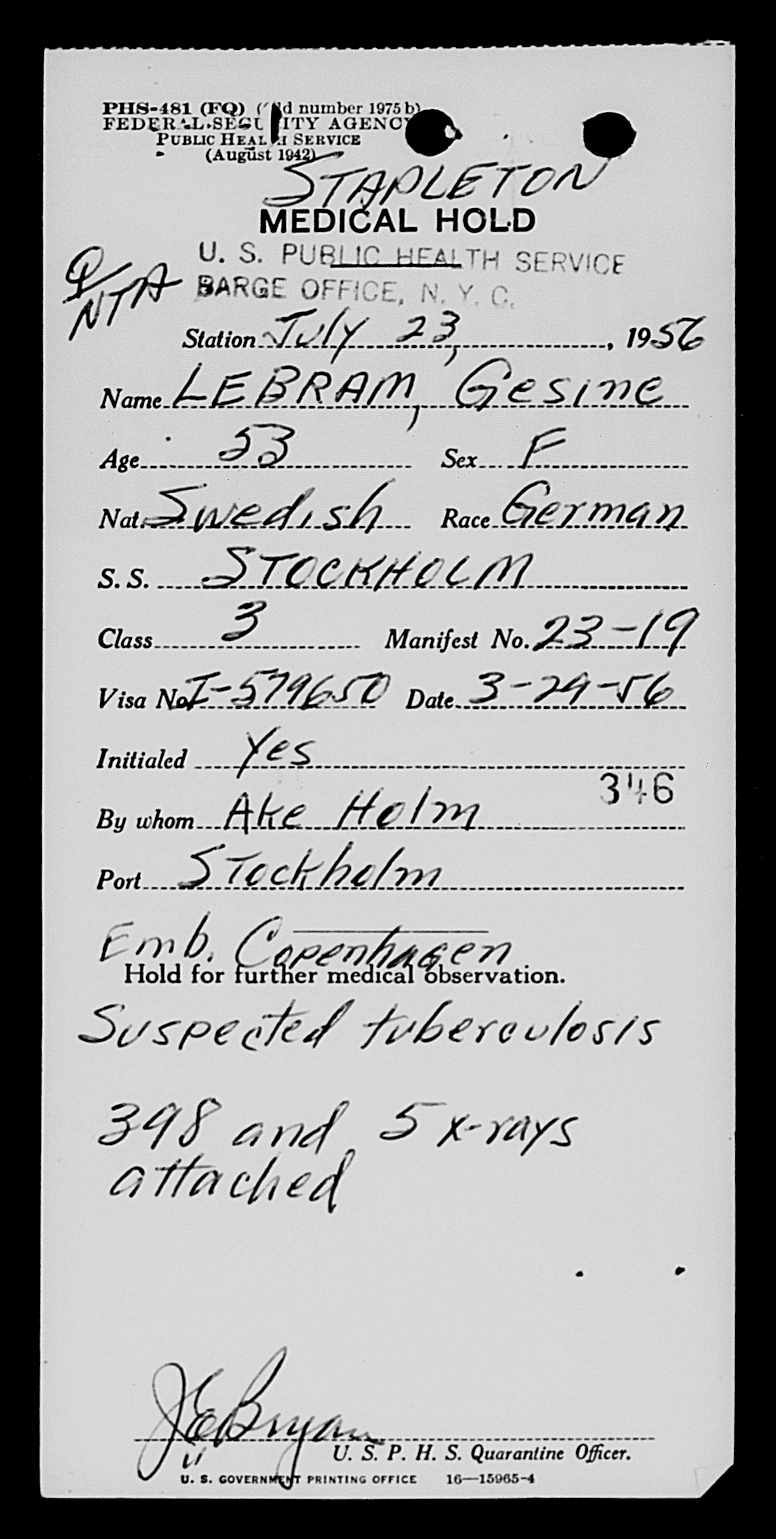 PHS-481 (FQ) (Old number 1975 b)
FEDERAL SECURITY AGENCY
PUBLIC HEALTH SERVICE
(August 1942)
STAPLETON
MEDICAL HOLD
U. S. PUBLIC HEALTH SERVICE
NTA BARGE OFFICE, N. Y. C.
Station July 23, , 1956
Name LEBRAM, Gesine
Age 53 Sex F
Nat. Swedish Race German
S. S. STOCKHOLM
Class 3 Manifest No. 23-19
Visa No. I-579650 Date 3-29-56
Initialed Yes
346
By whom Ake Holm
Port Stockholm
Emb. Copenhagen
Hold for further medical observation.
Suspected tuberculosis
398 and 5 x-rays
attached
J E Bryan
U. S. P. H. S. Quarantine Officer.
U. S. GOVERNMENT PRINTING OFFICE 16—15965-4